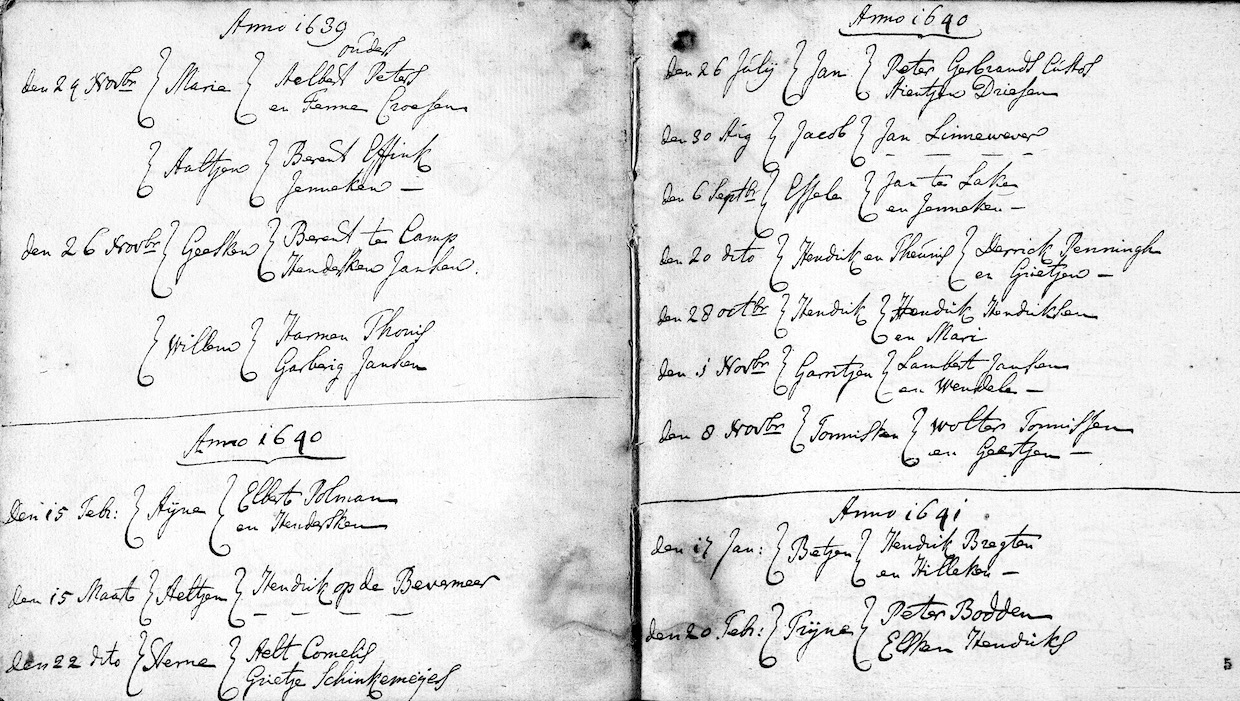 Anno 1639
ouders
den 24 Novbr } Maria } Aelbert Peters
en Fenne Croesen
} Aaltjen } Berent Essink
Jenneken —
den 26 Novbr } Geesken } Berent ter Camp
Hendersken Jansen.
} Willem } Harmen Thonis
Garberig Jansen
Anno 1640
den 15 Febr: } Aijne } Elbert Polman
en Hendersken
den 15 Maart } Aeltjen } Hendrik op de Bevermeer
den 22 dito } Sterne } Aelt Cornelis
Grietje Schinkemeijers
Anno 1640
den 26 Julij } Jan } Peter Gerbrands Custos
Aientjen Driesen
den 30 Aug } Jacob } Jan Linnewever
den 6 Septbr } Essele } Jan ter Lake
en Jenneken —
den 20 dito } Hendrik en Theunis } Derrick Penningh
en Grietjen —
den 28 octbr } Hendrik } Hendrik Hendriksen
en Mari
den 1 Novbr } Garritjen } Lambert Jansen
en Wendele —
den 8 Novbr } Tonnisken } Wolter Tonnissen
en Geertjen —
Anno 1641
den 17 Jan: } Betjen } Hendrik Bregten
en Hilleken —
den 20 Febr: } Trijne } Peter Bodden
Elsken Hendriks
5